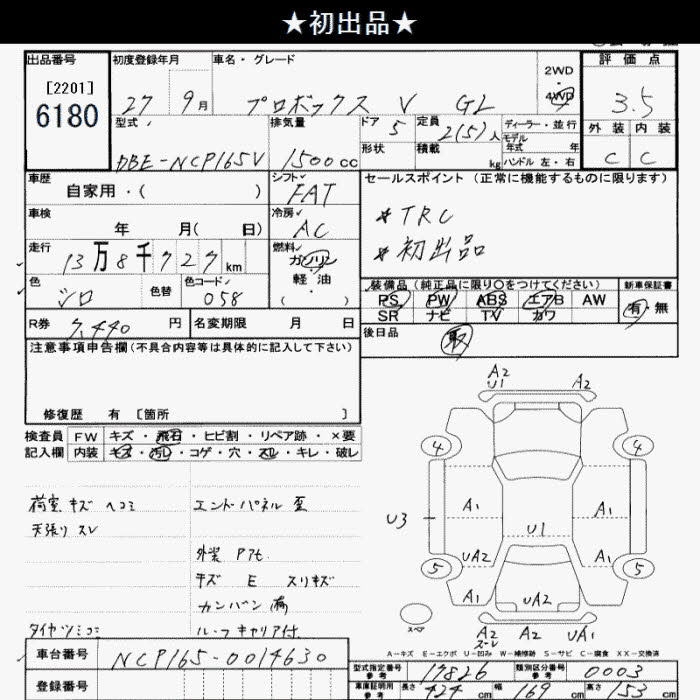 ★初出品★
出品番号
[2201]
6180
初度登録年月
27 9月
車名・グレード
プロボックス V GL
2WD
・
4WD
評価点
3.5
外装 内装
C C
型式
DBE-NCP165V
排気量
1500cc
ドア 5
形状
定員 2(5)人
積載 kg
ディーラー・並行
モデル
年式 年
ハンドル 左・右
車歴
自家用・( )
シフト
FAT
セールスポイント (正常に機能するものに限ります)
*TRC
*初出品
車検
年 月( 日)
冷房
AC
走行
13万8千727km
燃料
ガソリン
・
軽・油
・
( )
色
シロ
色替
色コード
058
装備品(純正品に限り○をつけてください)
PS PW ABS エアB AW
SR ナビ TV カワ
新車保証書
有・無
R券 7,440円
名変期限 月 日
後日品
取
注意事項申告欄(不具合内容等は具体的に記入して下さい)
修復歴 有 [箇所 ]
検査員 FW キズ・飛石・ヒビ割・リペア跡・×要
記入欄 内装 キズ・汚レ・コゲ・穴・スレ・キレ・破レ
荷室キズ ヘコミ
天張り スレ
タイヤツミコミ
エンドパネル 歪
外装 Pアセ
キズ E スリキズ
カンバン有
ルーフキャリア付
A2
U1 A2
4 4
A1 A1
U3 U1
UA2 A1
5 5
A1 UA2 A1
スペア
A2 A2 UA1
スレ
A-キズ E-エクボ U-凹み W-補修跡 S-サビ C-腐食 XX-交換済
車台番号 NCP165-0014630
登録番号
型式指定番号
参考 17826
類別区分番号
参考 0003
車庫証明用
参考 長さ 424cm 幅 169cm 高さ 153cm